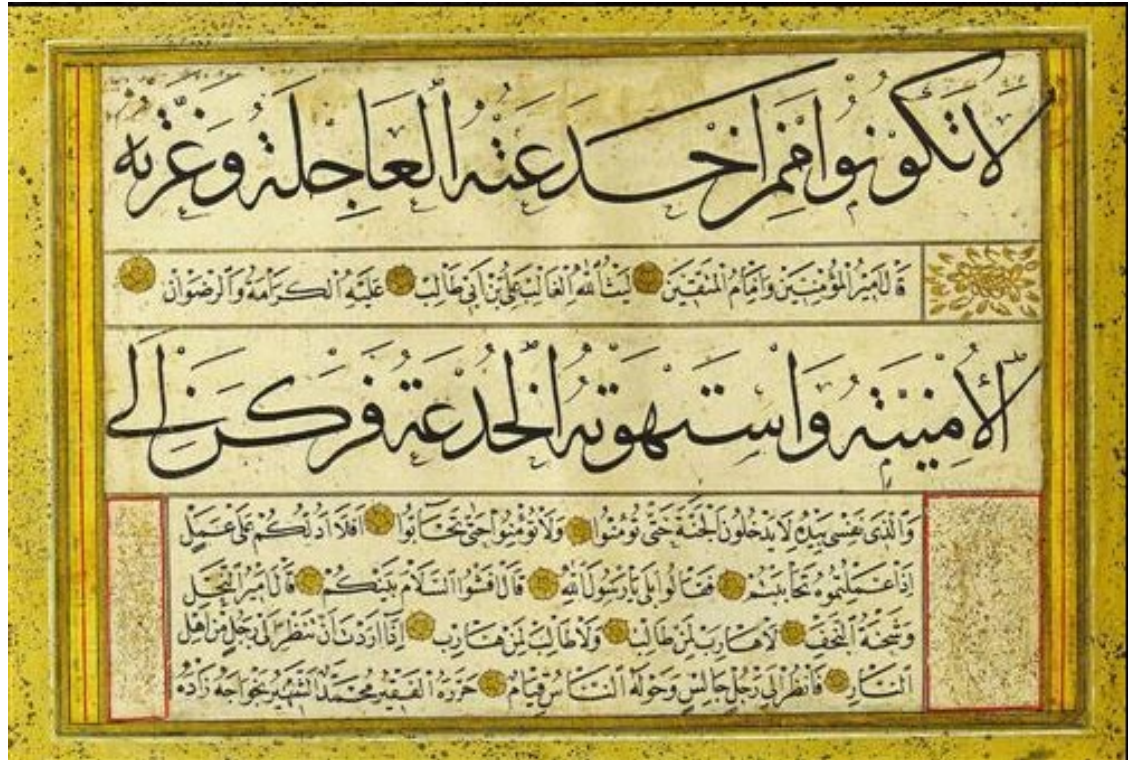 لَا تَكُونُوا مِمَّن خَدَعَتْهُ الْعَاجِلَةُ وَغَرَّتْهُ
قَالَ اَمِيرُ الْمُؤْمِنِينَ وَاِمَامُ الْمُتَّقِينَ لَيْثُ اللهِ الْغَالِبُ عَلِيُّ بْنُ اَبِي طَالِبٍ عَلَيْهِ الْكَرَامَةُ وَالرِّضْوَانُ
الْاُمْنِيَّةُ وَاسْتَهْوَتْهُ الْخُدْعَةُ فَرَكَنَ اِلَى
وَالَّذِي نَفْسِي بِيَدِهِ لَا يَدْخُلُونَ الْجَنَّةَ حَتَّى تُؤْمِنُوا وَلَا تُؤْمِنُوا حَتَّى تَحَابُّوا اَفَلَا اَدُلُّكُمْ عَلَى عَمَلٍ
اِذَا عَمِلْتُمُوهُ تَحَابَبْتُمْ فَقَالُوا بَلَى يَا رَسُولَ اللهِ قَالَ اَفْشُوا السَّلَامَ بَيْنَكُمْ قَالَ اَمِيرُ النَّحْلِ
وَشِحْنَةُ النَّجَفِ لَا هَارِبَ لِمَنْ طَالِبٌ وَلَا طَالِبَ لِمَنْ هَارِبٌ اِذَا اَرَدْتَ اَنْ تَنْظُرَ اِلَى رَجُلٍ مِنْ اَهْلِ
النَّارِ فَانْظُرْ اِلَى رَجُلٍ جَالِسٍ وَحَوْلَهُ النَّاسُ قِيَامٌ حَرَّرَهُ الْفَقِيرُ مُحَمَّدُ الشَّهِيرُ بِخَوَاجَه زَادَه